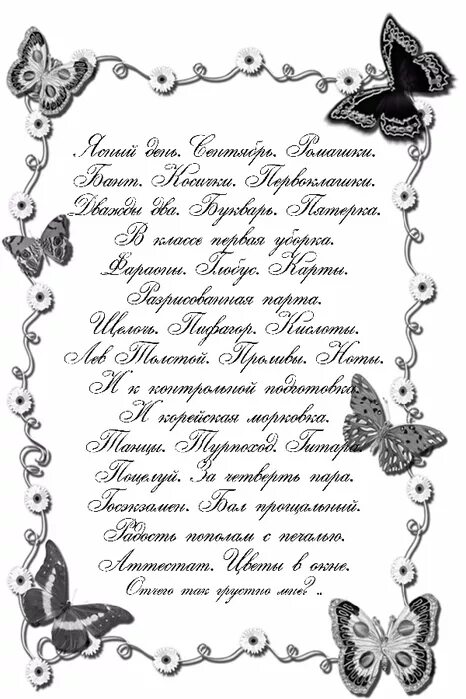 Ясный день. Сентябрь. Ромашки.
Бант. Косички. Первоклашки.
Дважды два. Букварь. Пятерка.
В классе первая уборка.
Фараоны. Глобус. Карты.
Разрисованная парта.
Щелочь. Пифагор. Кислоты.
Лев Толстой. Проливы. Ноты.
И к контрольной подготовка.
И корейская морковка.
Танцы. Турпоход. Гитара.
Поцелуй. За четверть пара.
Госэкзамен. Бал прощальный.
Радость пополам с печалью.
Аттестат. Цветы в окне.
Отчего так грустно мне? ..